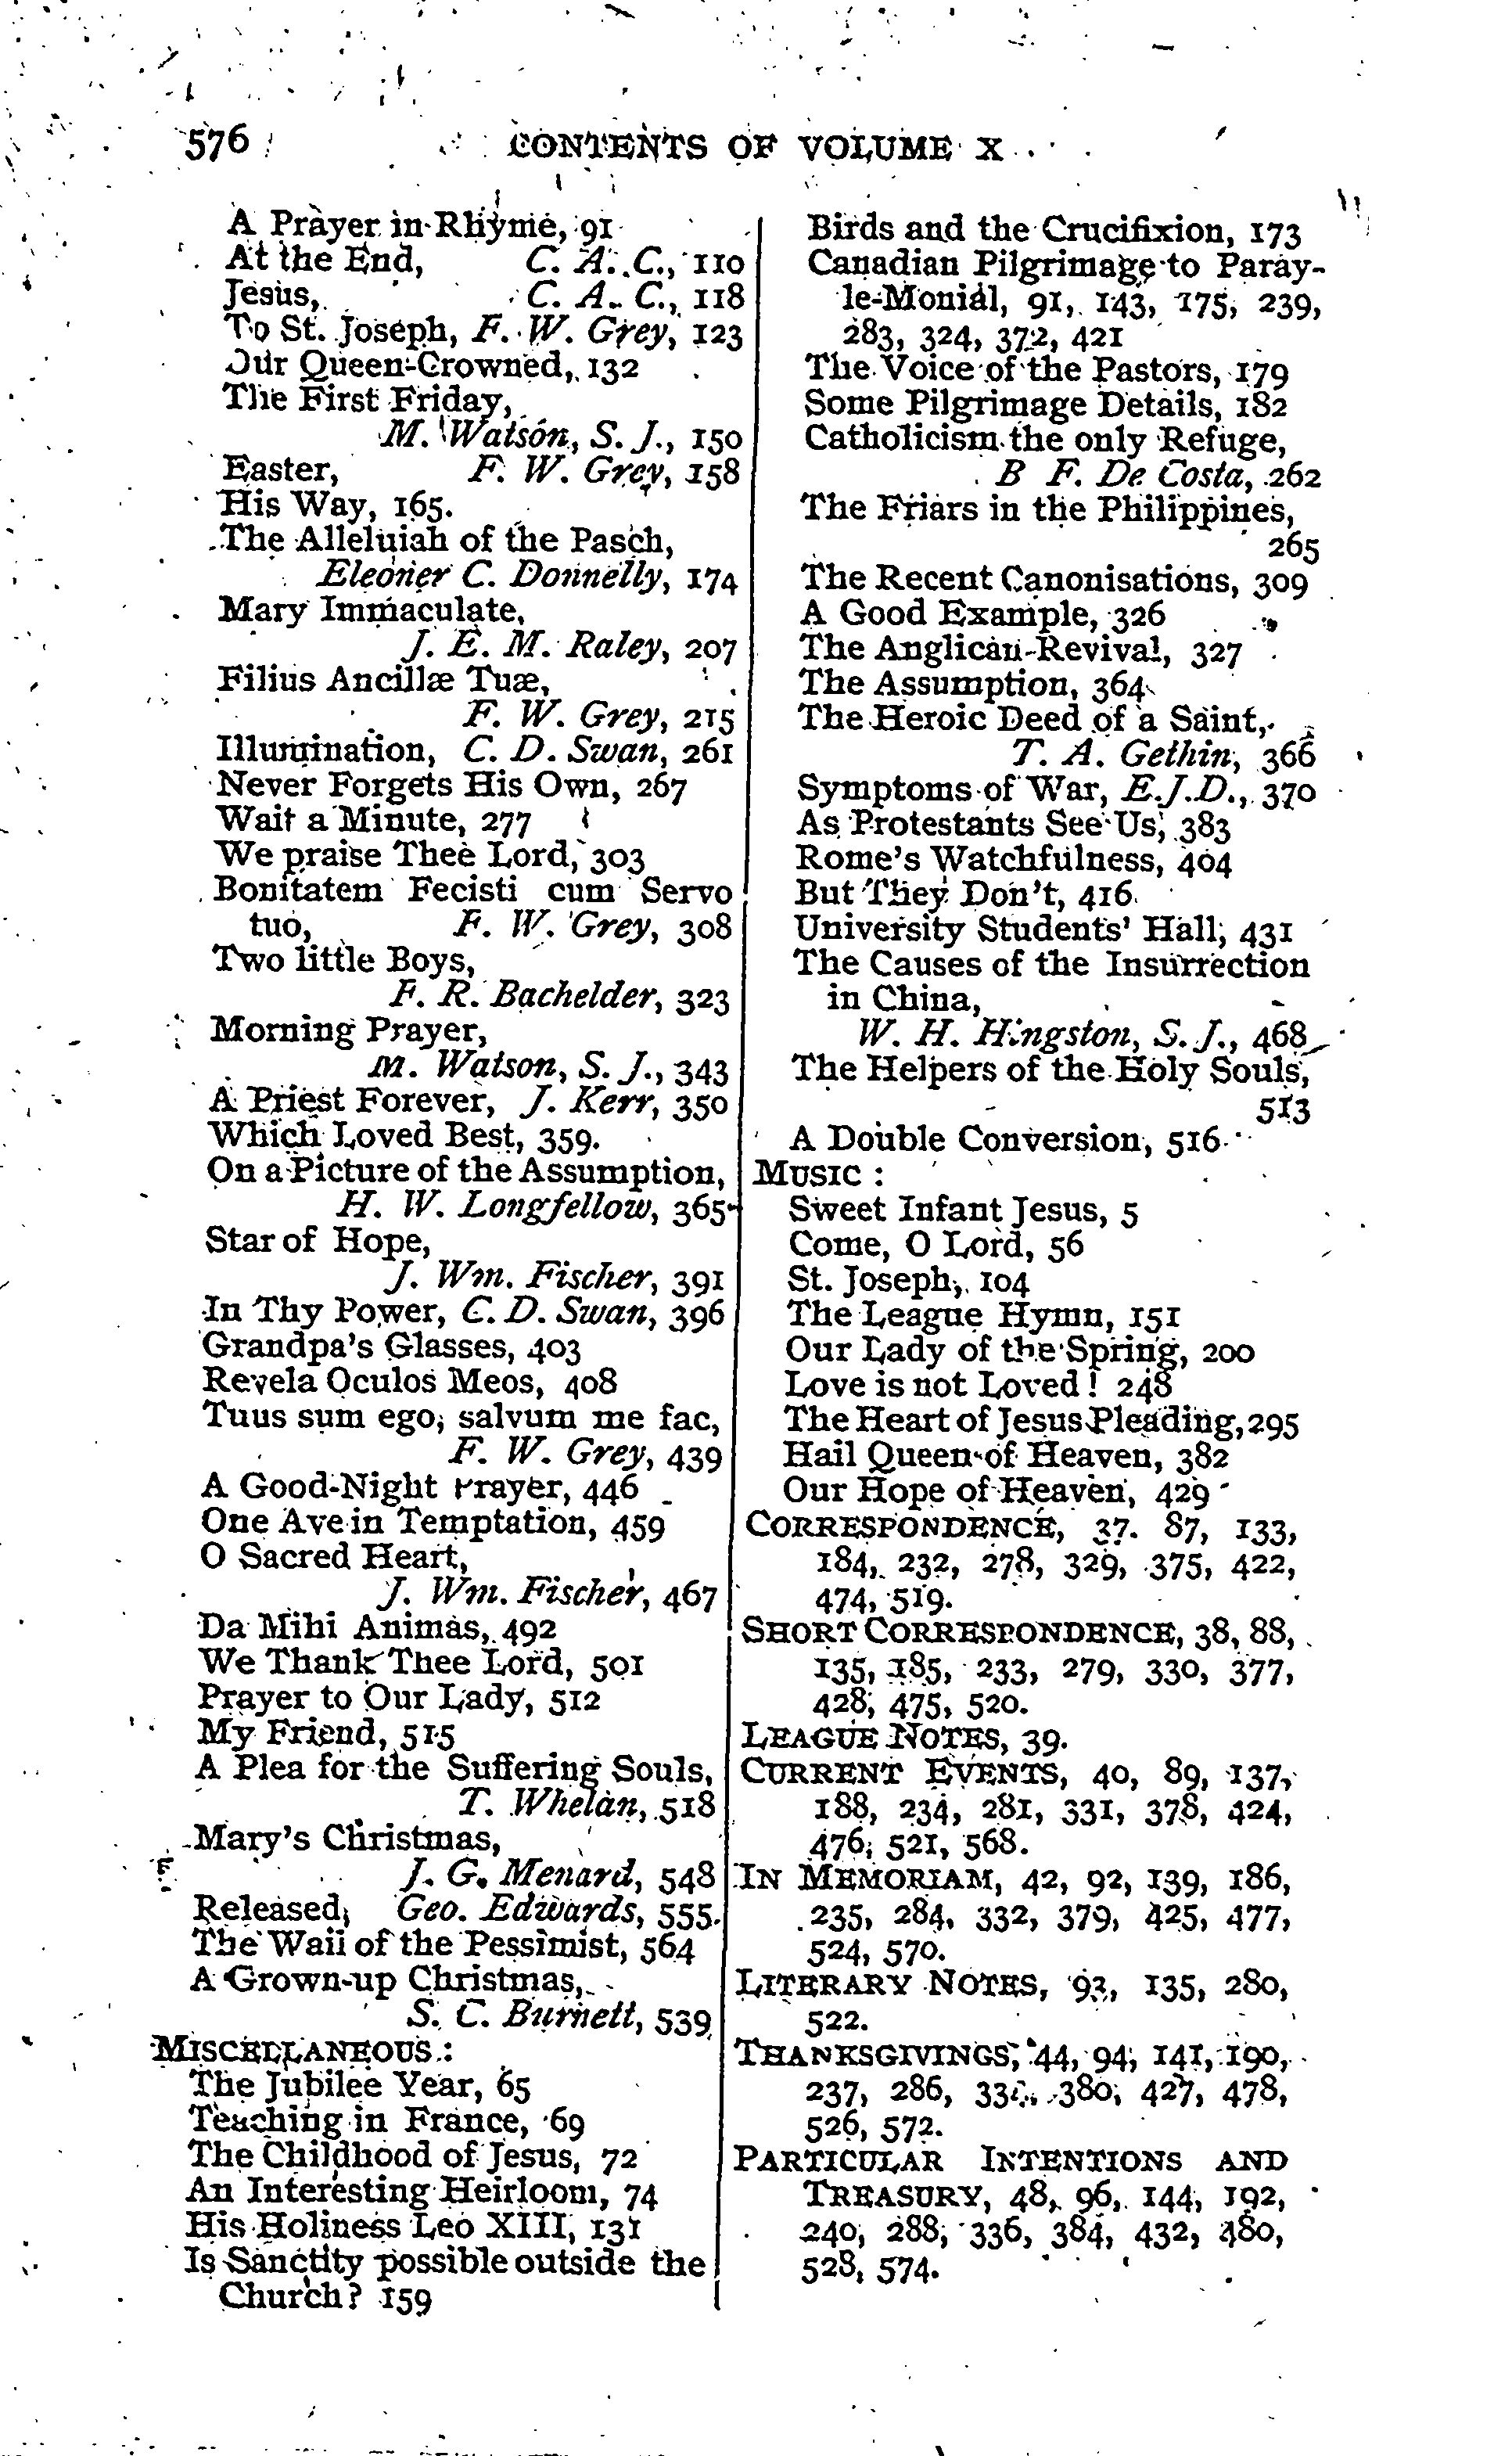 576 CONTENTS OF VOLUME X
A Prayer in Rhyme, 91
At the End, C. A. C., 110
Jesus, C. A. C., 118
To St. Joseph, F. W. Grey, 123
Our Queen-Crowned, 132
The First Friday,
M. Watson, S. J., 150
Easter, F. W. Grey, 158
His Way, 165.
The Alleluiah of the Pasch,
Eleoner C. Donnelly, 174
Mary Immaculate,
J. E. M. Raley, 207
Filius Ancillæ Tuæ,
F. W. Grey, 215
Illumination, C. D. Swan, 261
Never Forgets His Own, 267
Wait a Minute, 277
We praise Thee Lord, 303
Bonitatem Fecisti cum Servo
tuo, F. W. Grey, 308
Two little Boys,
F. R. Bachelder, 323
Morning Prayer,
M. Watson, S. J., 343
A Priest Forever, J. Kerr, 350
Which Loved Best, 359.
On a Picture of the Assumption,
H. W. Longfellow, 365
Star of Hope,
J. Wm. Fischer, 391
In Thy Power, C. D. Swan, 396
Grandpa's Glasses, 403
Revela Oculos Meos, 408
Tuus sum ego, salvum me fac,
F. W. Grey, 439
A Good-Night Prayer, 446
One Ave in Temptation, 459
O Sacred Heart,
J. Wm. Fischer, 467
Da Mihi Animas, 492
We Thank Thee Lord, 501
Prayer to Our Lady, 512
My Friend, 515
A Plea for the Suffering Souls,
T. Whelan, 518
Mary's Christmas,
J. G. Menard, 548
Released, Geo. Edwards, 555.
The Wail of the Pessimist, 564
A Grown-up Christmas,
S. C. Burnett, 539
MISCELLANEOUS:
The Jubilee Year, 65
Teaching in France, 69
The Childhood of Jesus, 72
An Interesting Heirloom, 74
His Holiness Leo XIII, 131
Is Sanctity possible outside the
Church? 159
Birds and the Crucifixion, 173
Canadian Pilgrimage to Paray-
le-Monial, 91, 143, 175, 239,
283, 324, 372, 421
The Voice of the Pastors, 179
Some Pilgrimage Details, 182
Catholicism the only Refuge,
B F. De Costa, 262
The Friars in the Philippines,
265
The Recent Canonisations, 309
A Good Example, 326
The Anglican Revival, 327
The Assumption, 364
The Heroic Deed of a Saint,
T. A. Gethin, 366
Symptoms of War, E.J.D., 370
As Protestants See Us, 383
Rome's Watchfulness, 404
But They Don't, 416
University Students' Hall, 431
The Causes of the Insurrection
in China,
W. H. Hingston, S. J., 468
The Helpers of the Holy Souls,
513
A Double Conversion, 516
MUSIC:
Sweet Infant Jesus, 5
Come, O Lord, 56
St. Joseph, 104
The League Hymn, 151
Our Lady of the Spring, 200
Love is not Loved! 248
The Heart of Jesus Pleading, 295
Hail Queen of Heaven, 382
Our Hope of Heaven, 429
CORRESPONDENCE, 37. 87, 133,
184, 232, 278, 329, 375, 422,
474, 519.
SHORT CORRESPONDENCE, 38, 88,
135, 185, 233, 279, 330, 377,
428, 475, 520.
LEAGUE NOTES, 39.
CURRENT EVENTS, 40, 89, 137,
188, 234, 281, 331, 378, 424,
476, 521, 568.
IN MEMORIAM, 42, 92, 139, 186,
235, 284, 332, 379, 425, 477,
524, 570.
LITERARY NOTES, 93, 135, 280,
522.
THANKSGIVINGS, 44, 94, 141, 190,
237, 286, 380, 427, 478,
526, 572.
PARTICULAR INTENTIONS AND
TREASURY, 48, 96, 144, 192,
240, 288, 336, 384, 432, 480,
528, 574.